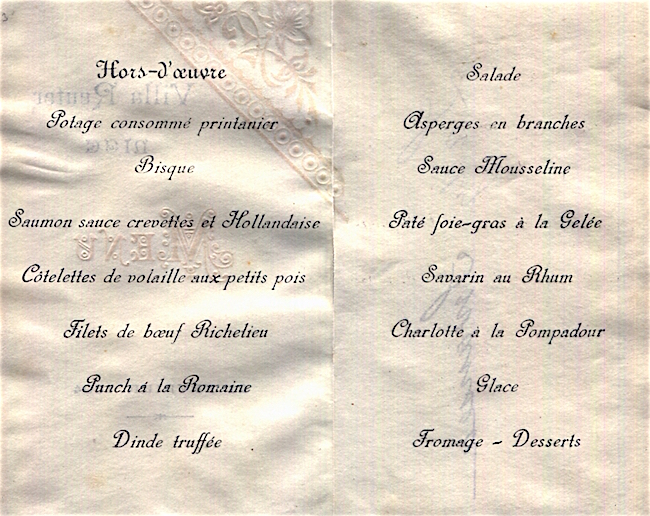 Hors-d'œuvre
Potage consommé printanier
Bisque
Saumon sauce crevettes et Hollandaise
Côtelettes de volaille aux petits pois
Filets de bœuf Richelieu
Punch á la Romaine
Dinde truffée
Salade
Asperges en branches
Sauce Mousseline
Paté foie-gras à la Gelée
Savarin au Rhum
Charlotte à la Pompadour
Glace
Fromage - Desserts
Villa Reuter
MENU